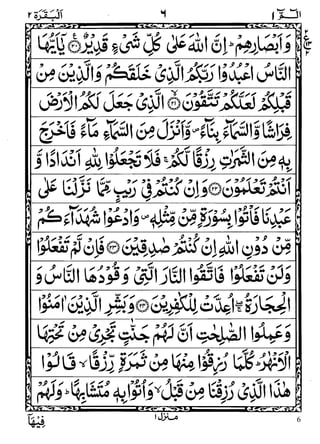 الٓـمّٓ ١ ٦ اَلْبَقَرَة ٢
وَاَبْصَارِهِمْ ؕ اِنَّ اللّٰهَ عَلٰى كُلِّ شَىْءٍ قَدِيْرٌ ﴿۲۰﴾ يٰۤاَيُّهَا
النَّاسُ اعْبُدُوْا رَبَّكُمُ الَّذِىْ خَلَقَكُمْ وَالَّذِيْنَ مِنْ
قَبْلِكُمْ لَعَلَّكُمْ تَتَّقُوْنَ ﴿۲۱﴾ الَّذِىْ جَعَلَ لَكُمُ الْاَرْضَ
فِرَاشًا وَّالسَّمَآءَ بِنَآءً وَّاَنْزَلَ مِنَ السَّمَآءِ مَآءً فَاَخْرَجَ
بِهٖ مِنَ الثَّمَرٰتِ رِزْقًا لَّكُمْ ۚ فَلَا تَجْعَلُوْا لِلّٰهِ اَنْدَادًا وَّ
اَنْتُمْ تَعْلَمُوْنَ ﴿۲۲﴾ وَاِنْ كُنْتُمْ فِىْ رَيْبٍ مِّمَّا نَزَّلْنَا عَلٰى
عَبْدِنَا فَاْتُوْا بِسُوْرَةٍ مِّنْ مِّثْلِهٖ ۪ وَادْعُوْا شُهَدَآءَكُمْ
مِّنْ دُوْنِ اللّٰهِ اِنْ كُنْتُمْ صٰدِقِيْنَ ﴿۲۳﴾ فَاِنْ لَّمْ تَفْعَلُوْا
وَلَنْ تَفْعَلُوْا فَاتَّقُوا النَّارَ الَّتِىْ وَقُوْدُهَا النَّاسُ وَ
الْحِجَارَةُ ۖ اُعِدَّتْ لِلْكٰفِرِيْنَ ﴿۲۴﴾ وَبَشِّرِ الَّذِيْنَ اٰمَنُوْا
وَعَمِلُوا الصّٰلِحٰتِ اَنَّ لَهُمْ جَنّٰتٍ تَجْرِىْ مِنْ تَحْتِهَا
الْاَنْهٰرُ ؕ كُلَّمَا رُزِقُوْا مِنْهَا مِنْ ثَمَرَةٍ رِّزْقًا ۙ قَالُوْا
هٰذَا الَّذِىْ رُزِقْنَا مِنْ قَبْلُ ۙ وَاُتُوْا بِهٖ مُتَشَابِهًا ؕ وَلَهُمْ
فِيْهَاۤ
منزل ١
6